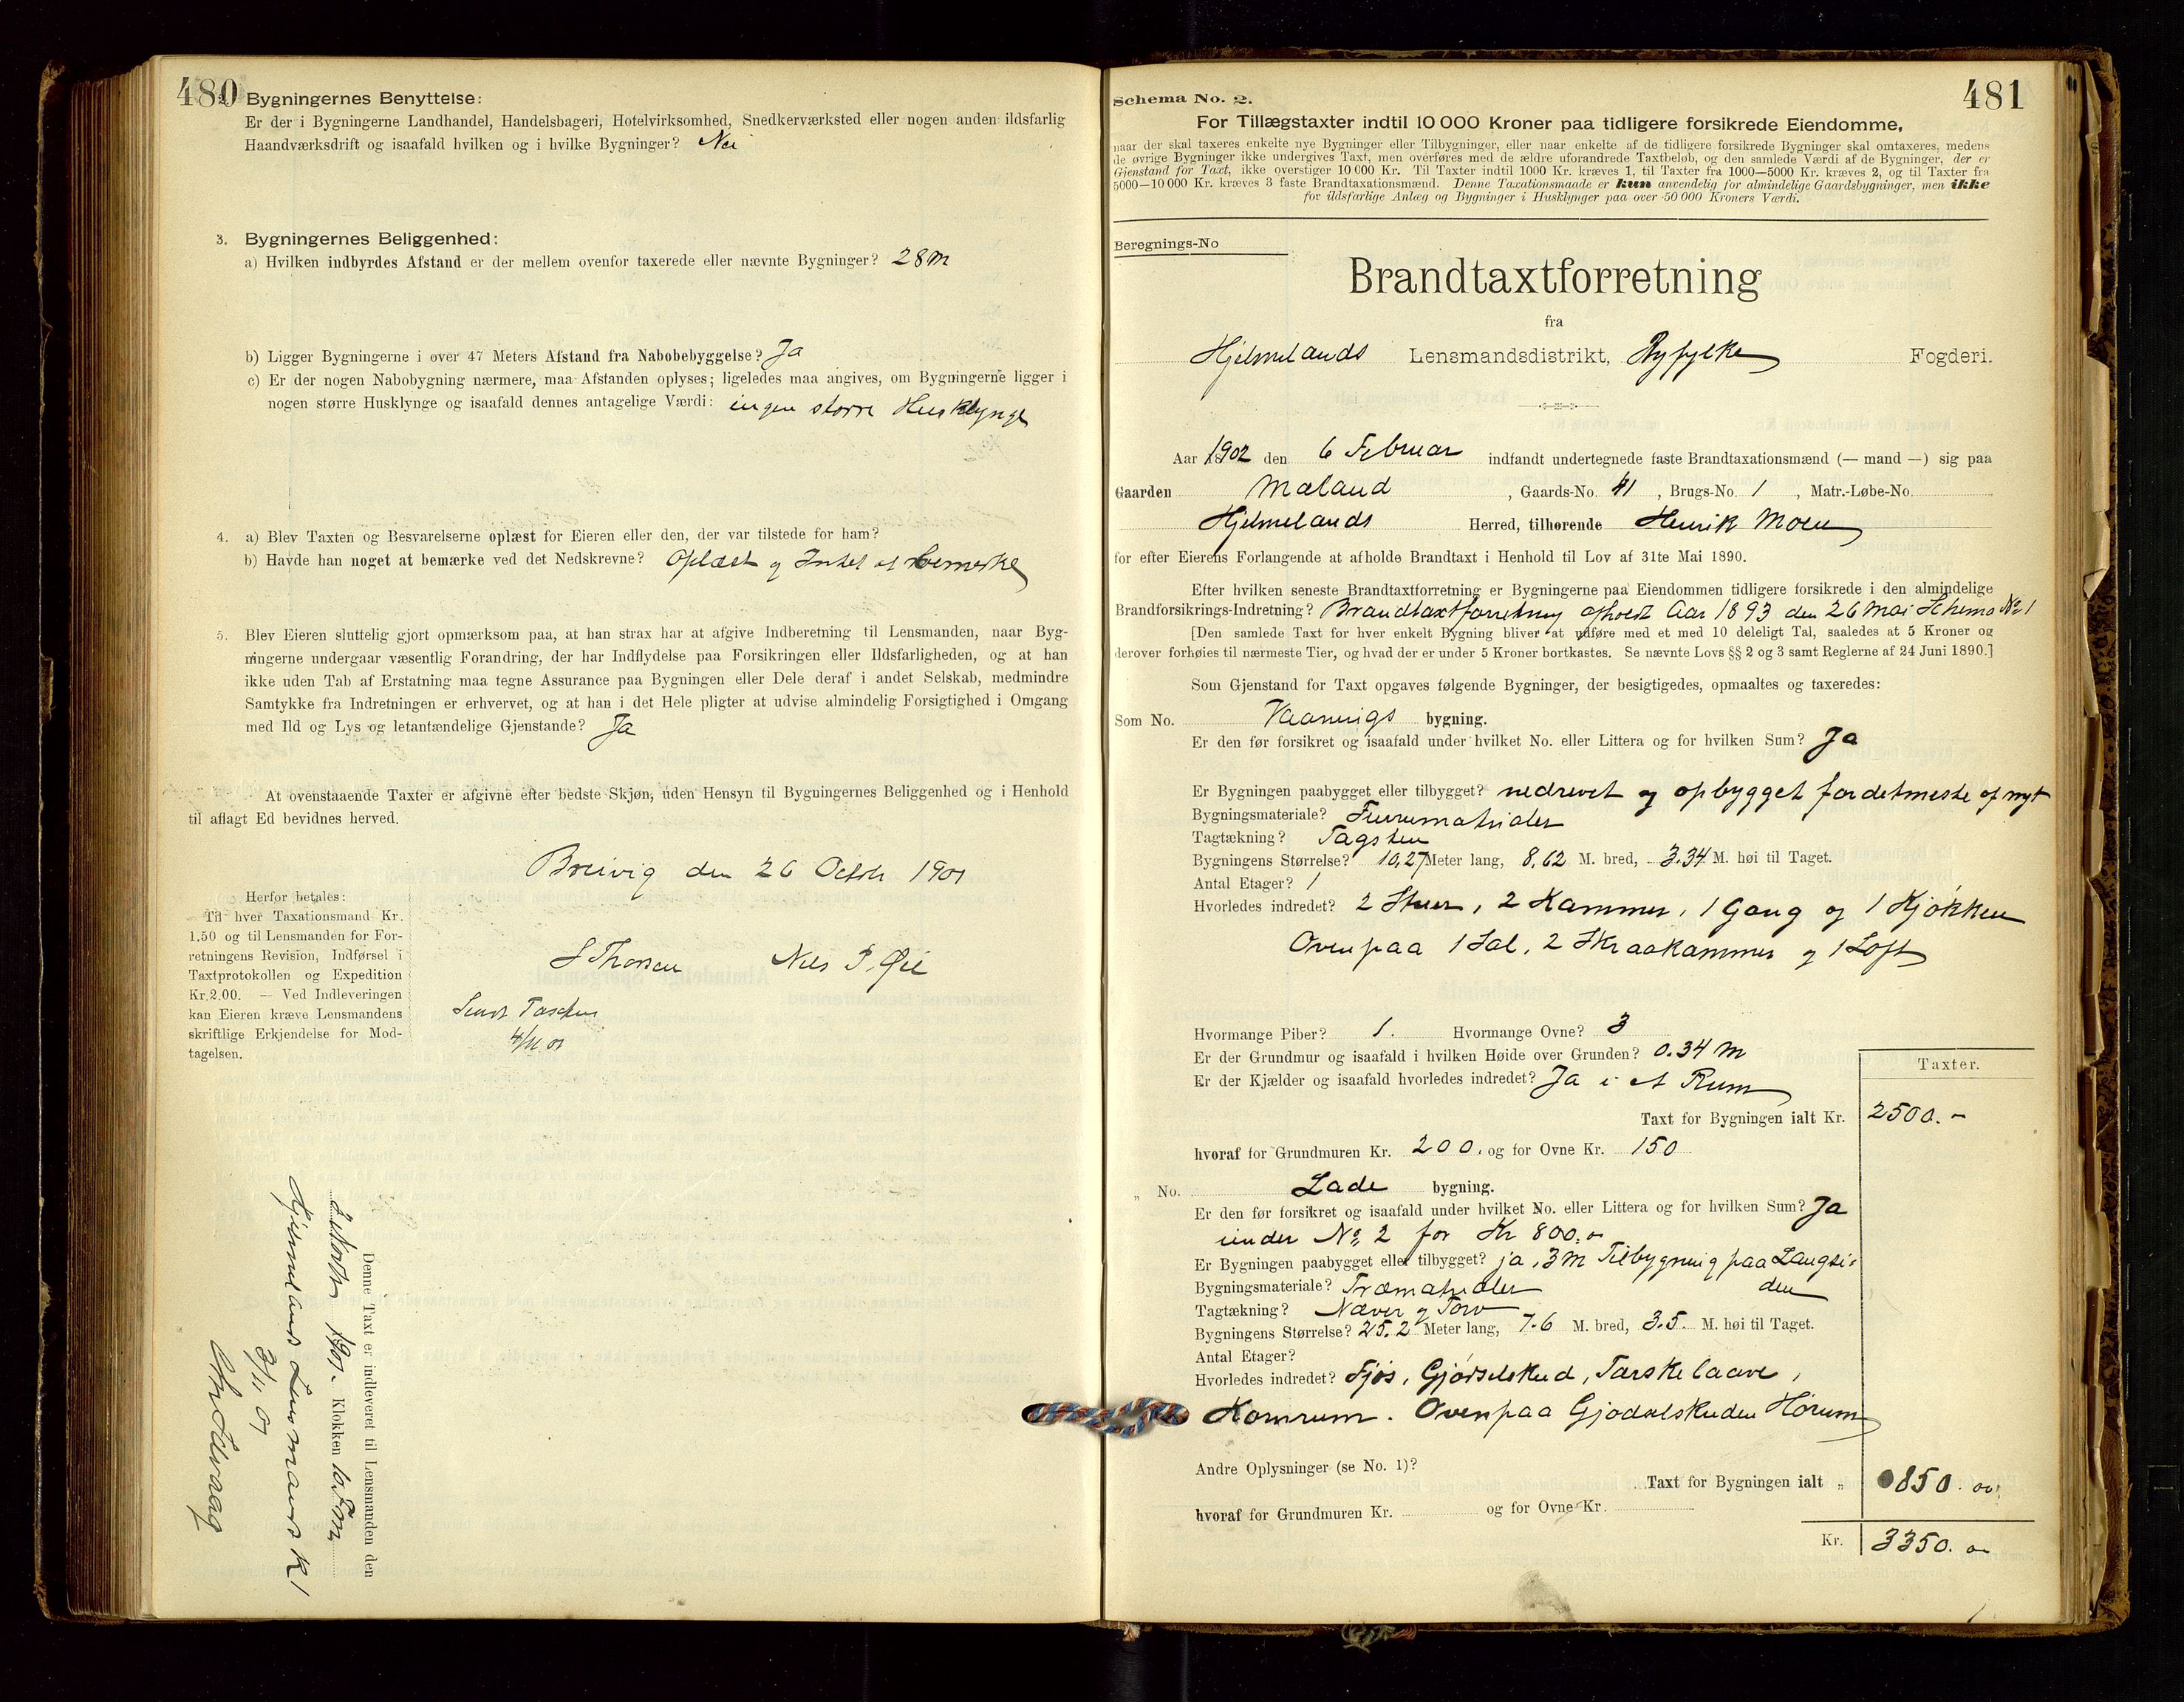 480
2. Bygningernes Benyttelse:
Er der i Bygningerne Landhandel, Handelsbageri, Hotelvirksomhed, Snedkerværksted eller nogen anden ildsfarlig
Haandværksdrift og isaafald hvilken og i hvilke Bygninger? Nei
3. Bygningernes Beliggenhed:
a) Hvilken indbyrdes Afstand er der mellem ovenfor taxerede eller nævnte Bygninger? 28 m
b) Ligger Bygningerne i over 47 Meters Afstand fra Nabobebyggelse? Ja
c) Er der nogen Nabobygning nærmere, maa Afstanden oplyses; ligeledes maa angives, om Bygningerne ligger i
nogen større Husklynge og isaafald dennes antagelige Værdi: ingen større Husklynge
4. a) Blev Taxten og Besvarelserne oplæst for Eieren eller den, der var tilstede for ham?
b) Havde han noget at bemærke ved det Nedskrevne? Oplæst og Intet at bemerke
5. Blev Eieren sluttelig gjort opmærksom paa, at han strax har at afgive Indberetning til Lensmanden, naar Byg-
ningerne undergaar væsentlig Forandring, der har Indflydelse paa Forsikringen eller Ildsfarligheden, og at han
ikke uden Tab af Erstatning maa tegne Assurance paa Bygningen eller Dele deraf i andet Selskab, medmindre
Samtykke fra Indretningen er erhvervet, og at han i det Hele pligter at udvise almindelig Forsigtighed i Omgang
med Ild og Lys og letantændelige Gjenstande? Ja
At ovenstaaende Taxter er afgivne efter bedste Skjøn, uden Hensyn til Bygningernes Beliggenhed og i Henhold
til aflagt Ed bevidnes herved.
Breivig den 26 Octbr 1901
Herfor betales:
Til hver Taxationsmand Kr.
1.50 og til Lensmanden for For-
retningens Revision, Indførsel i
Taxtprotokollen og Expedition
Kr. 2.00. — Ved Indleveringen
kan Eieren kræve Lensmandens
skriftlige Erkjendelse for Mod-
tagelsen.
S Thorsen Nils P. Øie
4/11 01
Denne Taxt er indleveret til Lensmanden den
1901. Klokken 10 Fm
Hjelmelands Lensmandsk
3/11 01
481
Schema No. 2.
For Tillægstaxter indtil 10 000 Kroner paa tidligere forsikrede Eiendomme,
naar der skal taxeres enkelte nye Bygninger eller Tilbygninger, eller naar enkelte af de tidligere forsikrede Bygninger skal omtaxeres, medens
de øvrige Bygninger ikke undergives Taxt, men overføres med de ældre uforandrede Taxtbeløb, og den samlede Værdi af de Bygninger, der er
Gjenstand for Taxt, ikke overstiger 10 000 Kr. Til Taxter indtil 1000 Kr. kræves 1, til Taxter fra 1000—5000 Kr. kræves 2, og til Taxter fra
5000—10 000 Kr. kræves 3 faste Brandtaxationsmænd. Denne Taxationsmaade er kun anvendelig for almindelige Gaardsbygninger, men ikke
for ildsfarlige Anlæg og Bygninger i Husklynger paa over 50 000 Kroners Værdi.
Beregnings-No
Brandtaxtforretning
fra
Hjelmelands Lensmandsdistrikt, Ryfylke Fogderi.
Aar 1902 den 6 Februar indfandt undertegnede faste Brandtaxationsmænd (— mand —) sig paa
Gaarden Mæland, Gaards-No. 41, Brugs-No. 1, Matr.-Løbe-No.
Hjelmelands Herred, tilhørende Henrik Moen
for efter Eierens Forlangende at afholde Brandtaxt i Henhold til Lov af 31te Mai 1890.
Efter hvilken seneste Brandtaxtforretning er Bygningerne paa Eiendommen tidligere forsikrede i den almindelige
Brandforsikrings-Indretning? Brandtaxtforretning afholdt Aar 1893 den 26 Mai Schema No 1
[Den samlede Taxt for hver enkelt Bygning bliver at udføre med et med 10 deleligt Tal, saaledes at 5 Kroner og
derover forhøies til nærmeste Tier, og hvad der er under 5 Kroner bortkastes. Se nævnte Lovs §§ 2 og 3 samt Reglerne af 24 Juni 1890.]
Som Gjenstand for Taxt opgaves følgende Bygninger, der besigtigedes, opmaaltes og taxeredes:
Som No. Vaanings bygning.
Er den før forsikret og isaafald under hvilket No. eller Littera og for hvilken Sum? Ja
Er Bygningen paabygget eller tilbygget? nedrevet og opbygget fordetmeste af nyt
Bygningsmateriale? Furrumatrialer
Tagtækning? Tagsten
Bygningens Størrelse? 10,27 Meter lang, 8,62 M. bred, 3.34 M. høi til Taget.
Antal Etager? 1
Hvorledes indredet? 2 Stuer, 2 Kammer, 1 Gang og 1 Kjøkken
Ovenpaa 1 Sal, 2 Skraakammer og 1 Loft
Hvormange Piber? 1. Hvormange Ovne? 3
Er der Grundmur og isaafald i hvilken Høide over Grunden? 0.34 m
Er der Kjælder og isaafald hvorledes indredet? Ja i et Rum
Taxter.
Taxt for Bygningen ialt Kr. 2500.-
hvoraf for Grundmuren Kr. 200. og for Ovne Kr. 150
„ No. Lade bygning.
Er den før forsikret og isaafald under hvilket No. eller Littera og for hvilken Sum? Ja
under No 2 for Kr 800.
Er Bygningen paabygget eller tilbygget? ja, 3 m Tilbygning paa Langsi-
den
Bygningsmateriale? Træmatrialer
Tagtækning? Næver og Torv
Bygningens Størrelse? 25.2 Meter lang, 7.6 M. bred, 3.5. M. høi til Taget.
Antal Etager?
Hvorledes indredet? Fjøs, Gjødselskud, Tærskelaave,
Kornrum. Ovenpaa Gjødselskuden Hørum
Andre Oplysninger (se No. 1)?
Taxt for Bygningen ialt „ 850. 00
hvoraf for Grundmuren Kr. og for Ovne Kr.
Kr. 3350.